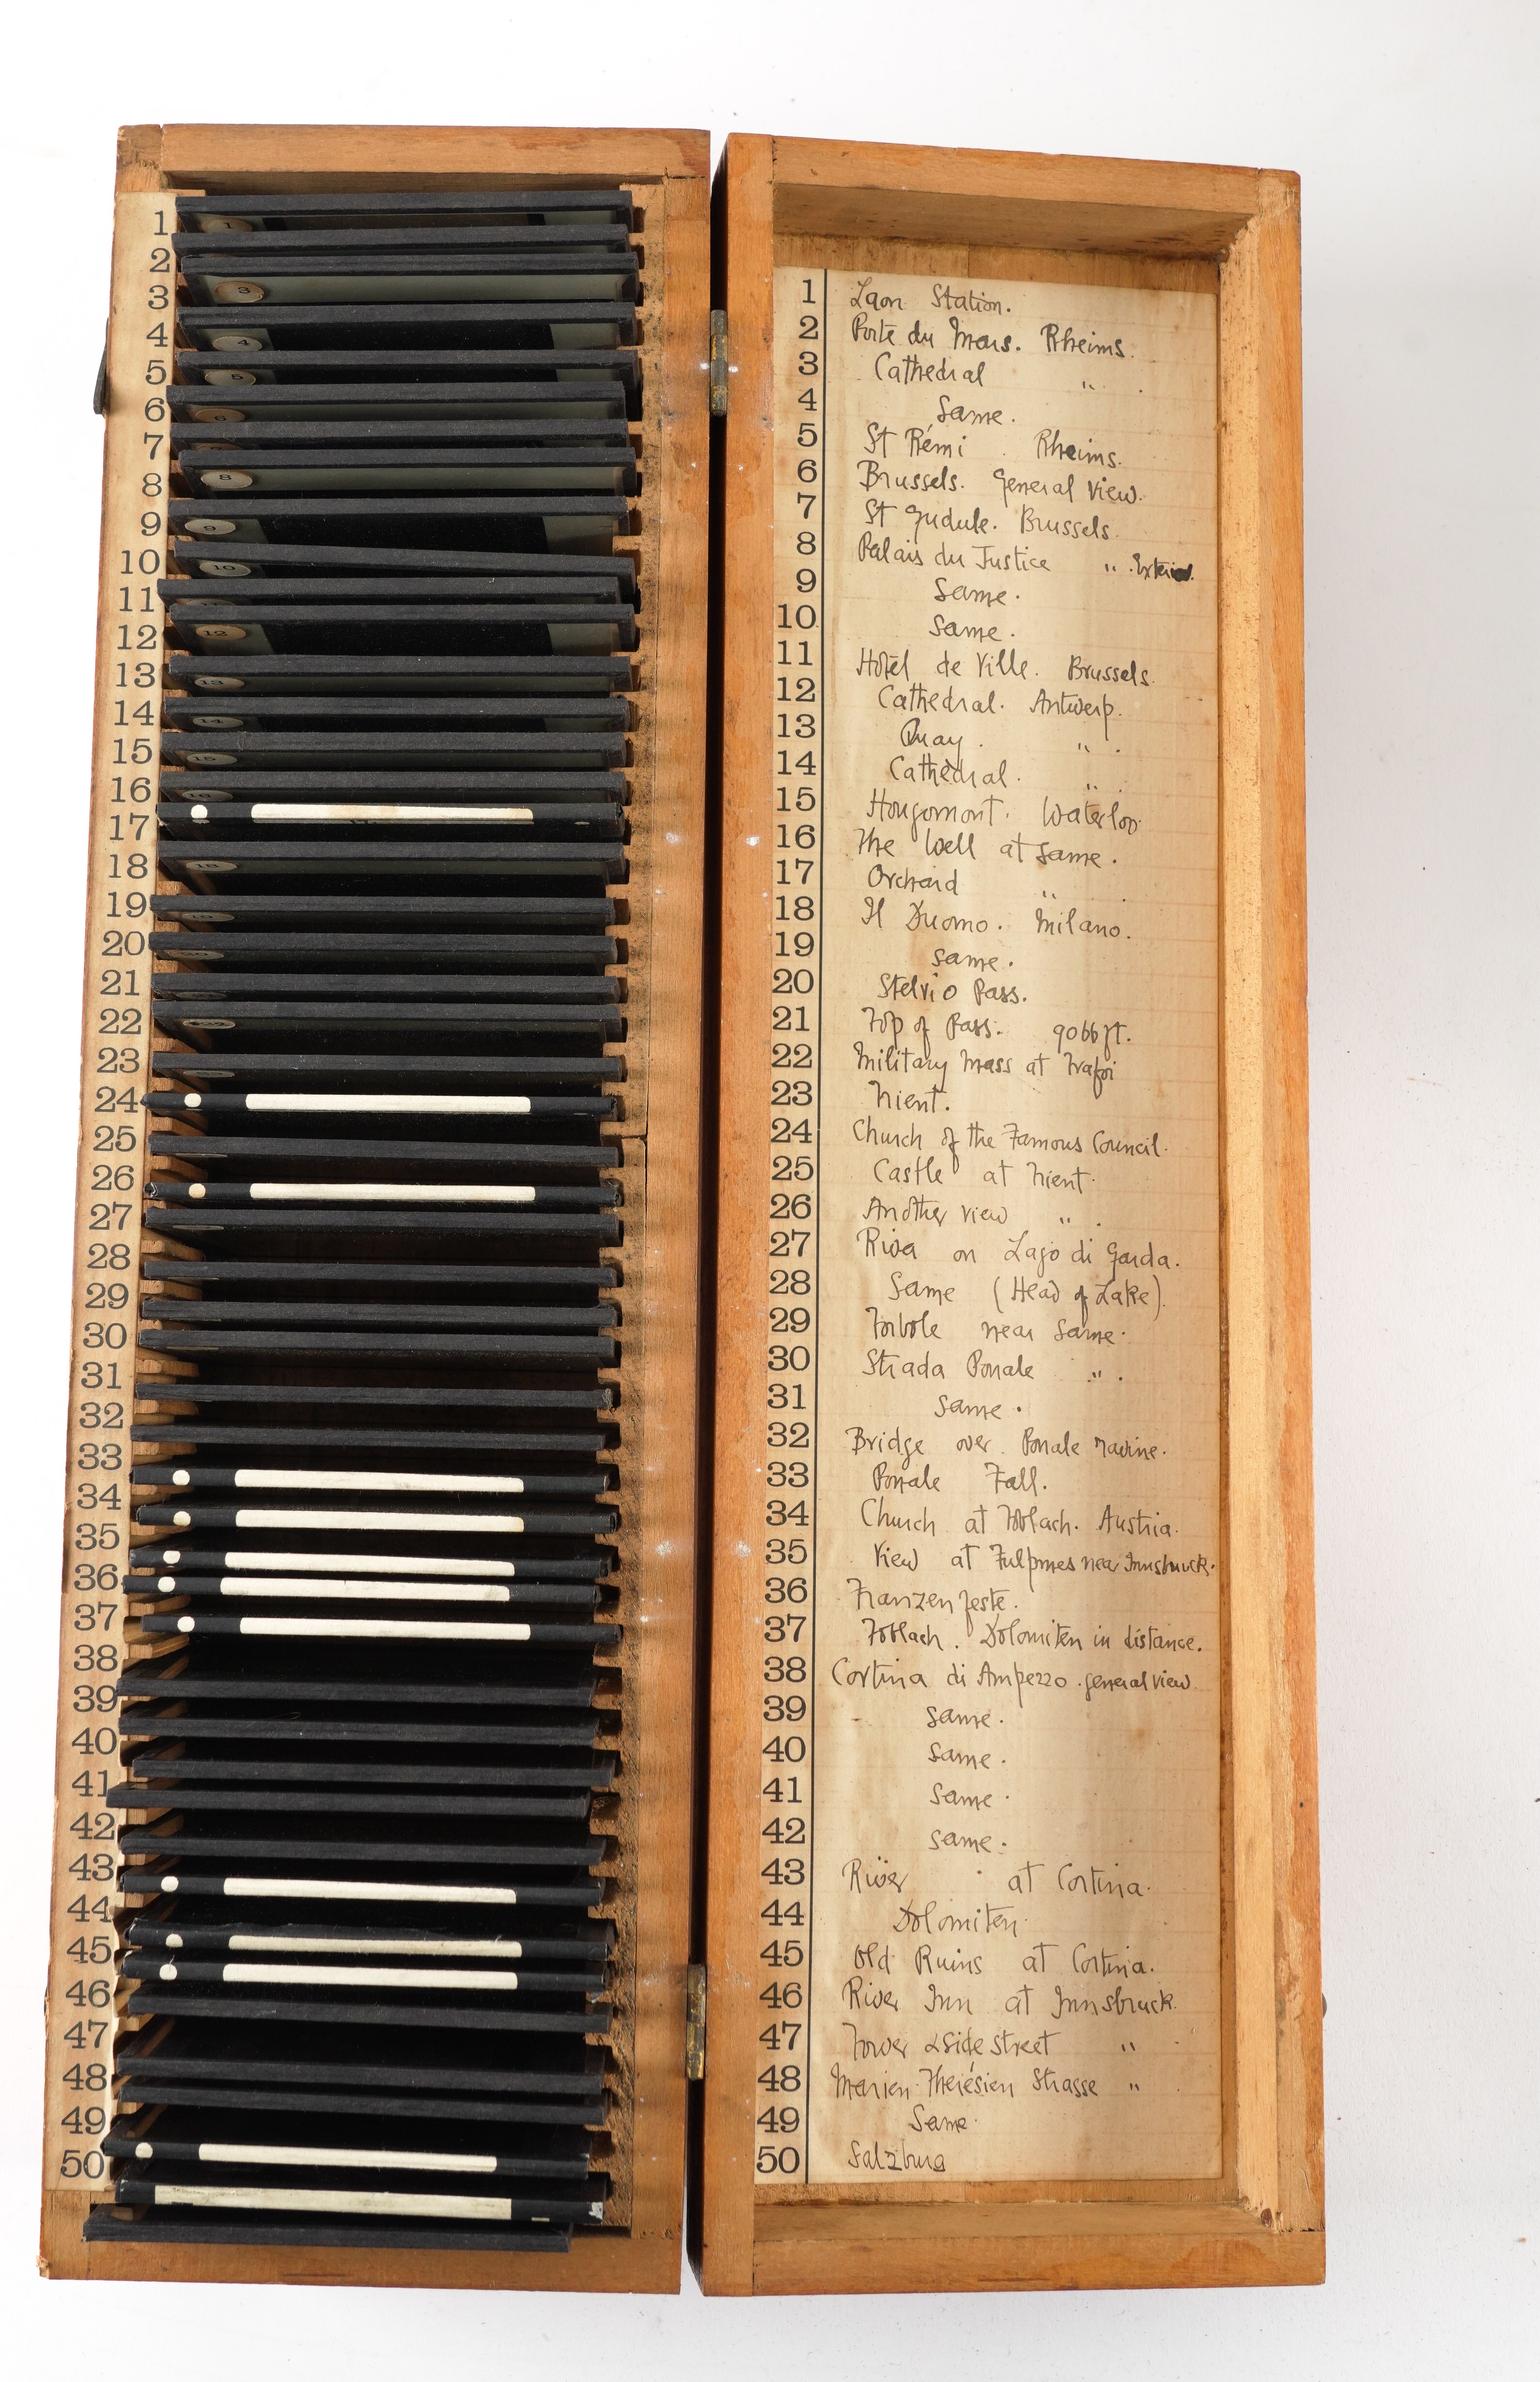 1
2
3
4
5
6
7
8
9
10
11
12
13
14
15
16
17
18
19
20
21
22
23
24
25
26
27
28
29
30
31
32
33
34
35
36
37
38
39
40
41
42
43
44
45
46
47
48
49
50
1
3
4
5
6
8
9
10
12
13
14
15
18
1 Laon Station.
2 Porte du Mars. Rheims.
3 Cathedral " .
4 Same.
5 St Rémi . Rheims.
6 Brussels. General View.
7 St Gudule. Brussels.
8 Palais du Justice " . Exterior.
9 Same.
10 Same.
11 Hotel de Ville. Brussels.
12 Cathedral. Antwerp.
13 Quay. " .
14 Cathedral. " .
15 Hougomont. Waterloo.
16 The Well at same.
17 Orchard " .
18 Il Duomo. Milano.
19 Same.
20 Stelvio Pass.
21 Top of Pass. 9066 ft.
22 Military Mass at Trafoi
23 Trient.
24 Church of the Famous Council.
25 Castle at Trient.
26 Another view " .
27 Riva on Lago di Garda.
28 Same (Head of Lake).
29 Torbole near Same.
30 Strada Ponale " .
31 Same.
32 Bridge over Ponale ravine.
33 Ponale Fall.
34 Church at Toblach. Austria.
35 View at Fulpmes near Innsbruck.
36 Franzenfeste.
37 Toblach. Dolomiten in distance.
38 Cortina di Ampezzo . general view
39 Same.
40 Same.
41 Same.
42 Same.
43 River at Cortina.
44 Dolomiten.
45 Old Ruins at Cortina.
46 River Inn at Innsbruck.
47 Tower & side street " .
48 Marien-Therésien Strasse " .
49 Same.
50 Salzburg